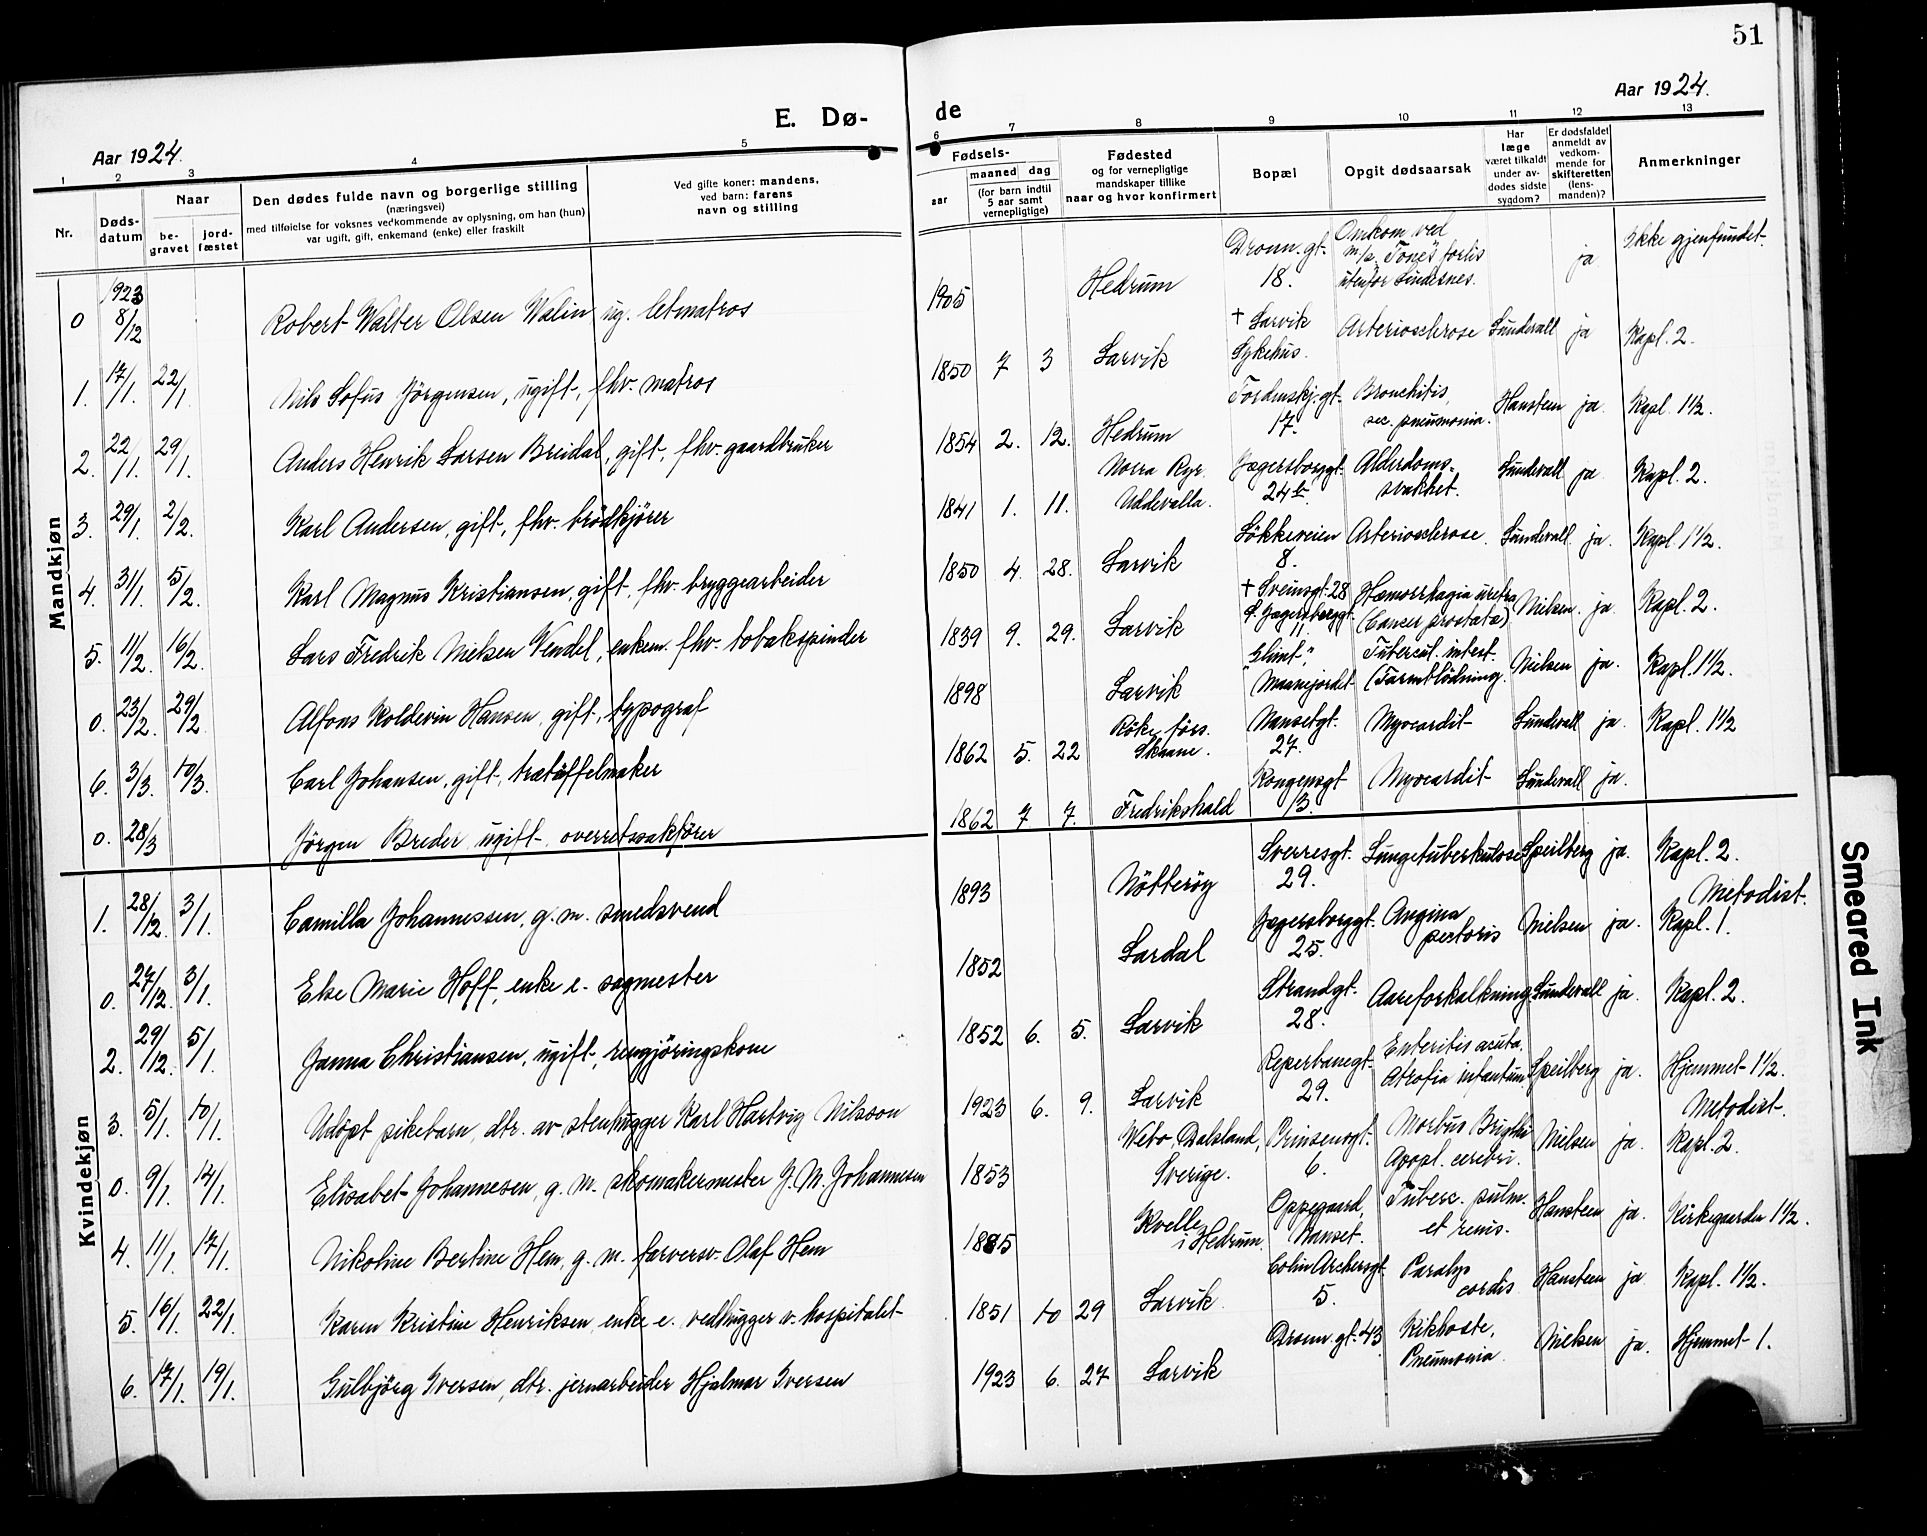 51
E. Dø-
de
Aar 1924.
Aar 1924.
1 2 3 4 5
6 7 8 9 10 11 12 13
Nr.
Døds-datum
Naar
be-gravet
jord-fæstet
Den dødes fulde navn og borgerlige stilling
(næringsvei)
med tilføielse for voksnes vedkommende av oplysning, om han (hun)
var ugift, gift, enkemand (enke) eller fraskilt
Ved gifte koner: mandens,
ved barn: farens
navn og stilling
Fødsels-
aar
maaned dag
(for barn indtil
5 aar samt
vernepligtige)
Fødested
og for vernepligtige
mandskaper tillike
naar og hvor konfirmert
Bopæl
Opgit dødsaarsak
Har
læge
været tilkaldt
under av-
dødes sidste
sygdom?
Er dødsfaldet
anmeldt av
vedkom-
mende for
skifteretten
(lens-
manden)?
Anmerkninger
Mandkjøn
0 1923 8/12 Robert Walter Olsen Walin, ug. letmatros 1905 Hedrum Dronn.gt. 18. Omkom ved m/s "Tones" forlis utenfor Lindesnes. ja Ikke gjenfundet
1. 17/1. 22/1 Nils Sofus Jörgensen, ugift, fhv. matros 1850 7 3 Larvik + Larvik Sykehus. Arteriosclerose Sundevall ja Kapl. 2.
2. 22/1. 29/1. Anders Henrik Larsen Breidal, gift, fhv. gaardbruker 1854 2. 12. Hedrum Tordenskj.gt. 17. Bronchitis, sec. pneumonia. Hansteen ja Kapl. 1½.
3. 29/1. 2/2. Karl Andersen, gift, fhv. brödkjörer 1841 1. 11. Norra Ryr Uddevalla. Jegersborggt. 24 b. Alderdoms-svakhet. Sundevall ja Kapl. 2.
4. 31/1. 5/2. Karl Magnus Kristiansen, gift, fhv. bryggearbeider 1850 4. 28. Larvik Lökkeveien 8. Arteriosclerose. Sundevall ja. Kapl. 1½.
5. 11/2. 16/2. Lars Fredrik Nielsen Vendel, enkem. fhv. tobakspinder 1839 9. 29. Larvik + Sveinsgt. 28 Jegersborggt. 11. Hæmorrhagia uretra (Cancer prostata) Nielsen ja. Kapl. 2.
0. 23/2. 29/2 Alfons Koldevin Hansen, gift, typograf 1898 Larvik "Glimt", Maanejordet Tubercul. intest. (Tarmblödning. Nielsen ja. Kapl. 1½.
6. 3/3. 10/3. Carl Johansen, gift, tretöffelmaker 1862 5. 22 Röke förs. Skaane. Nansetgt. 27. Myocardit Sundevall ja. Kapl. 1½
0. 28/3 Jörgen Breder, ugift, overretssakförer 1862 7 7. Fredrikshald Kongensgt 3. Myocardit Sundevall ja.
Kvindekjøn
1. 28/12. 3/1. Camilla Johannessen, g. m. smedsvend 1893 Nötteröy Sverresgt. 29. Lungetuberkulose Speilberg ja. Kapl. 2. Metodist.
0. 27/12. 3/1. Else Marie Hoff, enke e. sagmester 1852 Lardal Jegersborggt. 25. Angina pectoris Nielsen ja. Kapl. 1.
2. 29/12. 5/1. Janna Christiansen, ugift, rengjöringskone 1852 6. 5. Larvik Strandgt. 28. Aareforkalkning Sundevall ja. Kapl. 2.
3. 5/1. 10/1. Udöpt pikebarn, dtr. av stenhugger Karl Hartvig Nilsson 1923 6. 9. Larvik Reperbanegt. 29. Enteritis acuta, Atrofia infantum Speilberg ja. Hjemmet 1½. Metodist.
0. 9/1. 14/1. Elisabet Johannesen, g. m. skomakermester J. M. Johannesen 1853 Webo, Dalsland, Sverige. Prinsensgt. 6. Morbus Brigthi Apopl. cerebri. Nielsen ja. Kapl. 2
4. 11/1. 17/1. Nikoline Bertine Hem, g. m. farversv. Olaf Hem 1885 Kvelle i Hedrum. Oppegaard, Nanset. Tuberc. pulm. et renis. Hansteen ja. Kirkegaarden 1½.
5. 16/1. 22/1. Karen Kristine Henriksen, enke e. vedhugger v. hospitalet 1851 10 29 Larvik. Colin Archersgt. 5. Paralys cordis Hansteen ja Kapl. 1½.
6. 17/1. 19/1. Gulbjörg Iversen, dtr. jernarbeider Hjalmar Iversen 1923 6. 27 Larvik Dronn.gt. 43 Kikhoste, Pneumonia. Nielsen ja. Hjemmet 1.
Smeared Ink